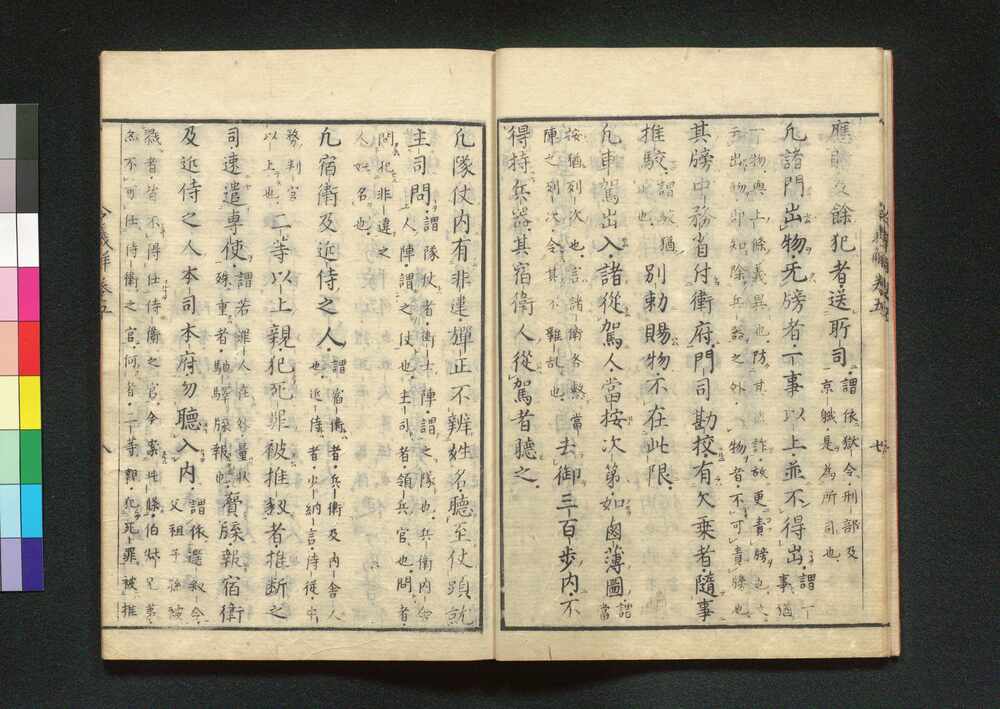 應 及餘犯者送所司謂依獄令刑部及京職是為所司也
凡諸門出物无牓者一事以上並不得出謂一事猶
一物與上條義異也防其 詐故更責牓也
元出物即知除兵器之外一物者不可責牓也
其牓中務省付衛府門司勘校有欠乗者隨事
推駮謂駮猶 也別勅賜物不在此限
凡車駕出入諸從駕人當按次第如鹵薄圖謂當
按猶列次也言諸衛各整常陣之列次令不雜乱也去御三百歩内不
得持兵器其宿衛人從駕者聽之
七
凡隊仗内有非違彈正不辨姓名聽至仗頭就
主司問謂隊仗者衛士陣謂之隊也兵衛内舎人陣謂之仗也主司者領兵官也問者
問犯非違之人姓名也
凡宿衛及近侍之人謂宿衛者兵衛及内舎人也近侍者少納言侍從中
務判官以上也二等以上親犯死罪被推劾者推断之
司速遣專使謂若罪人在外量狀殊重者馳驛牒報 賷牒報宿衛
及近侍之人本司本府勿聽入内謂依選叙令父祖子孫被
戮者皆不得仕侍衛之官今案此條伯叔兄弟
亦不可仕侍衛之官何者二等親犯死罪被推
八
令義解卷五